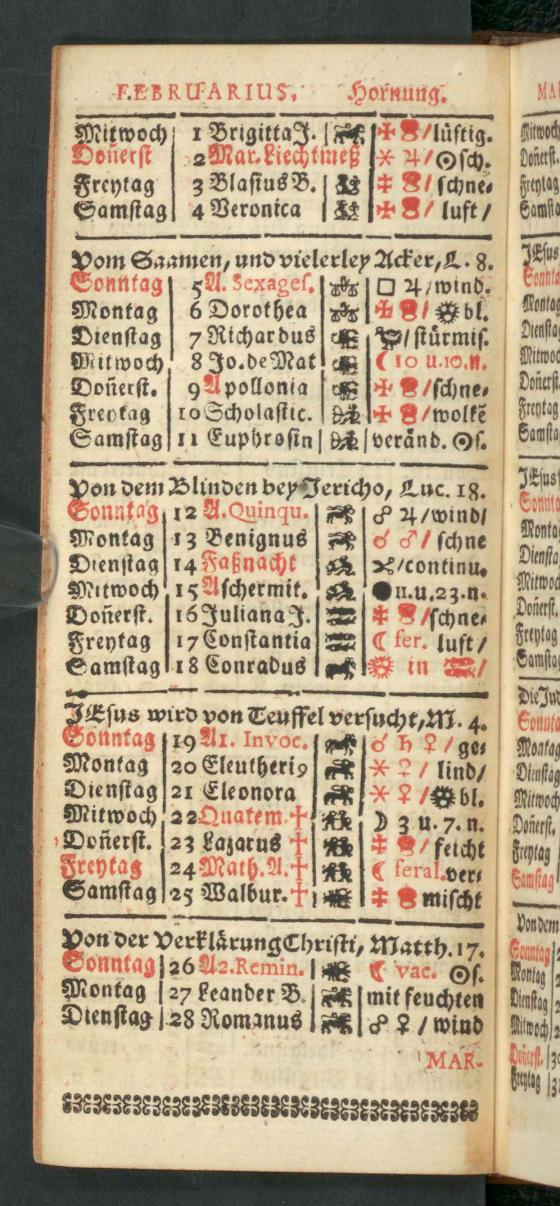 FEBRUARIUS, Hornung.
Mitwoch 1 Brigitta J. /lüftig.
Doñerst 2 Mar. Liechtmeß ⚹ ♃/☉sch.
Freytag 3 Blasius B. / schne⸗
Samstag 4 Veronica / luft /
Vom Saamen, und vielerley Acker, L. 8.
Sonntag 5 A. Sexages. □ ♃/wind.
Montag 6 Dorothea / bl.
Dienstag 7 Richardus /stürmis.
Mitwoch 8 Jo. de Mat ☾ 10 u. 10. n.
Doñerst. 9 Apollonia /schne⸗
Freytag 10 Scholastic. / wolkē
Samstag 11 Euphrosin veränd. ☉s.
Von dem Blinden bey Jericho, Luc. 18.
Sonntag 12 A. Quinqu. ☍ ♃/wind/
Montag 13 Benignus ☌ ♂/ schne
Dienstag 14 Faßnacht /continu.
Mitwoch 15 Aschermit. ●11. u. 23. n.
Doñerst. 16 Juliana J. /schne⸗
Freytag 17 Constantia ☾ fer. luft/
Samstag 18 Conradus in /
JEsus wird von Teuffel versucht, M. 4.
Sonntag 19 A1. Invoc. ☌ ♄ ♀/ ge⸗
Montag 20 Eleutheri9 ⚹ ♀/ lind/
Dienstag 21 Eleonora ⚹ ♀/ bl.
Mitwoch 22 Quatem. † ☽ 3 u. 7. n.
Doñerst. 23 Lazarus † / feicht
Freytag 24 Math. A. † ☾ feral. ver⸗
Samstag 25 Walbur. † mischt
Von der Verklärung Christi, Matth. 17.
Sonntag 26 A2. Remin. ☾ vac. ☉s.
Montag 27 Leander B. mit feuchten
Dienstag 28 Romanus ☍ ♀/ wind
MAR-